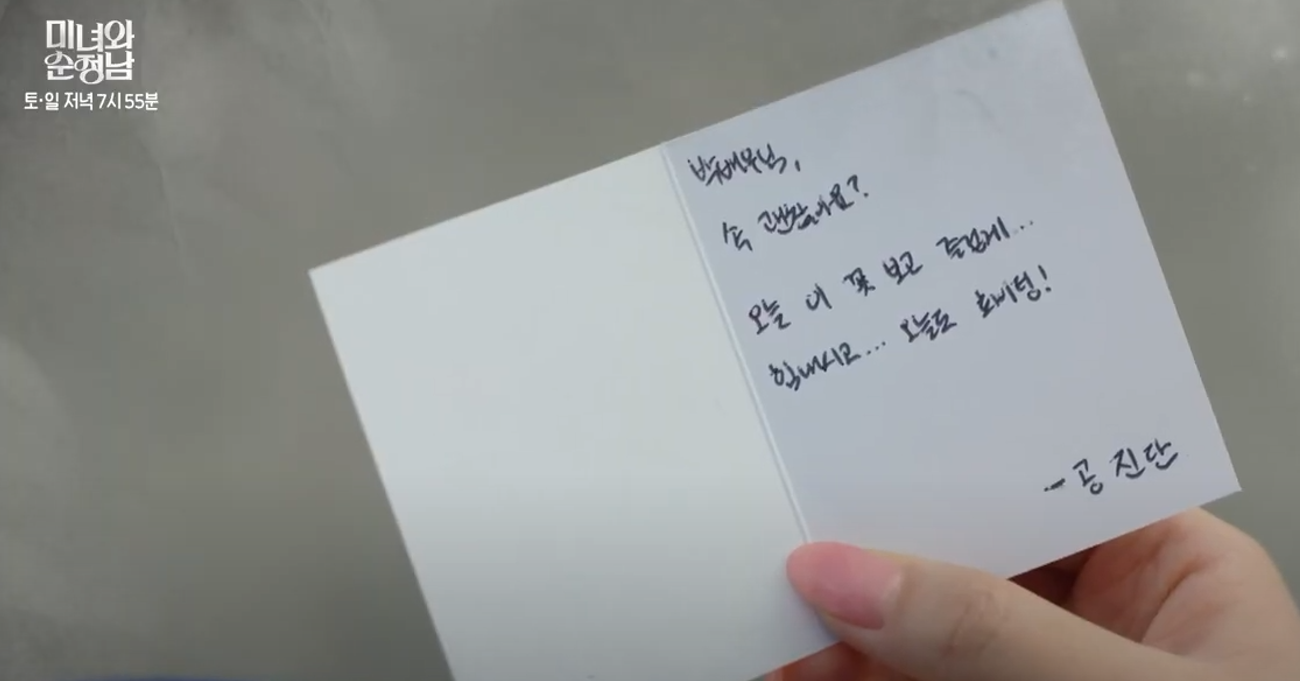 미녀와
순정남
토·일 저녁 7시 55분
박배우님,
속 괜찮아요?
오늘 이 꽃 보고 즐겁게...
힘내시고... 오늘도 화이팅!
-공진단